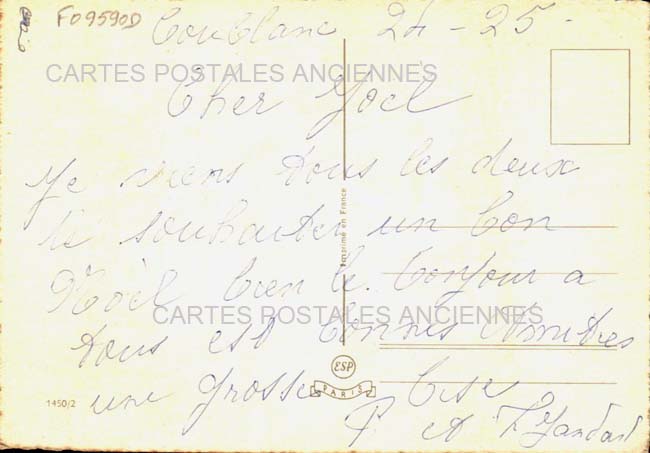 F09590D
Coublanc 24-25
CARTES POSTALES ANCIENNES
Cher Joël
Je viens tous les deux
te souhaiter un bon
Noël bien le bonjour a
CARTES POSTALES ANCIENNES
tous est bonnes
une grosse bise
P. et
Imprimé en France
ESP
PARIS
1450/2